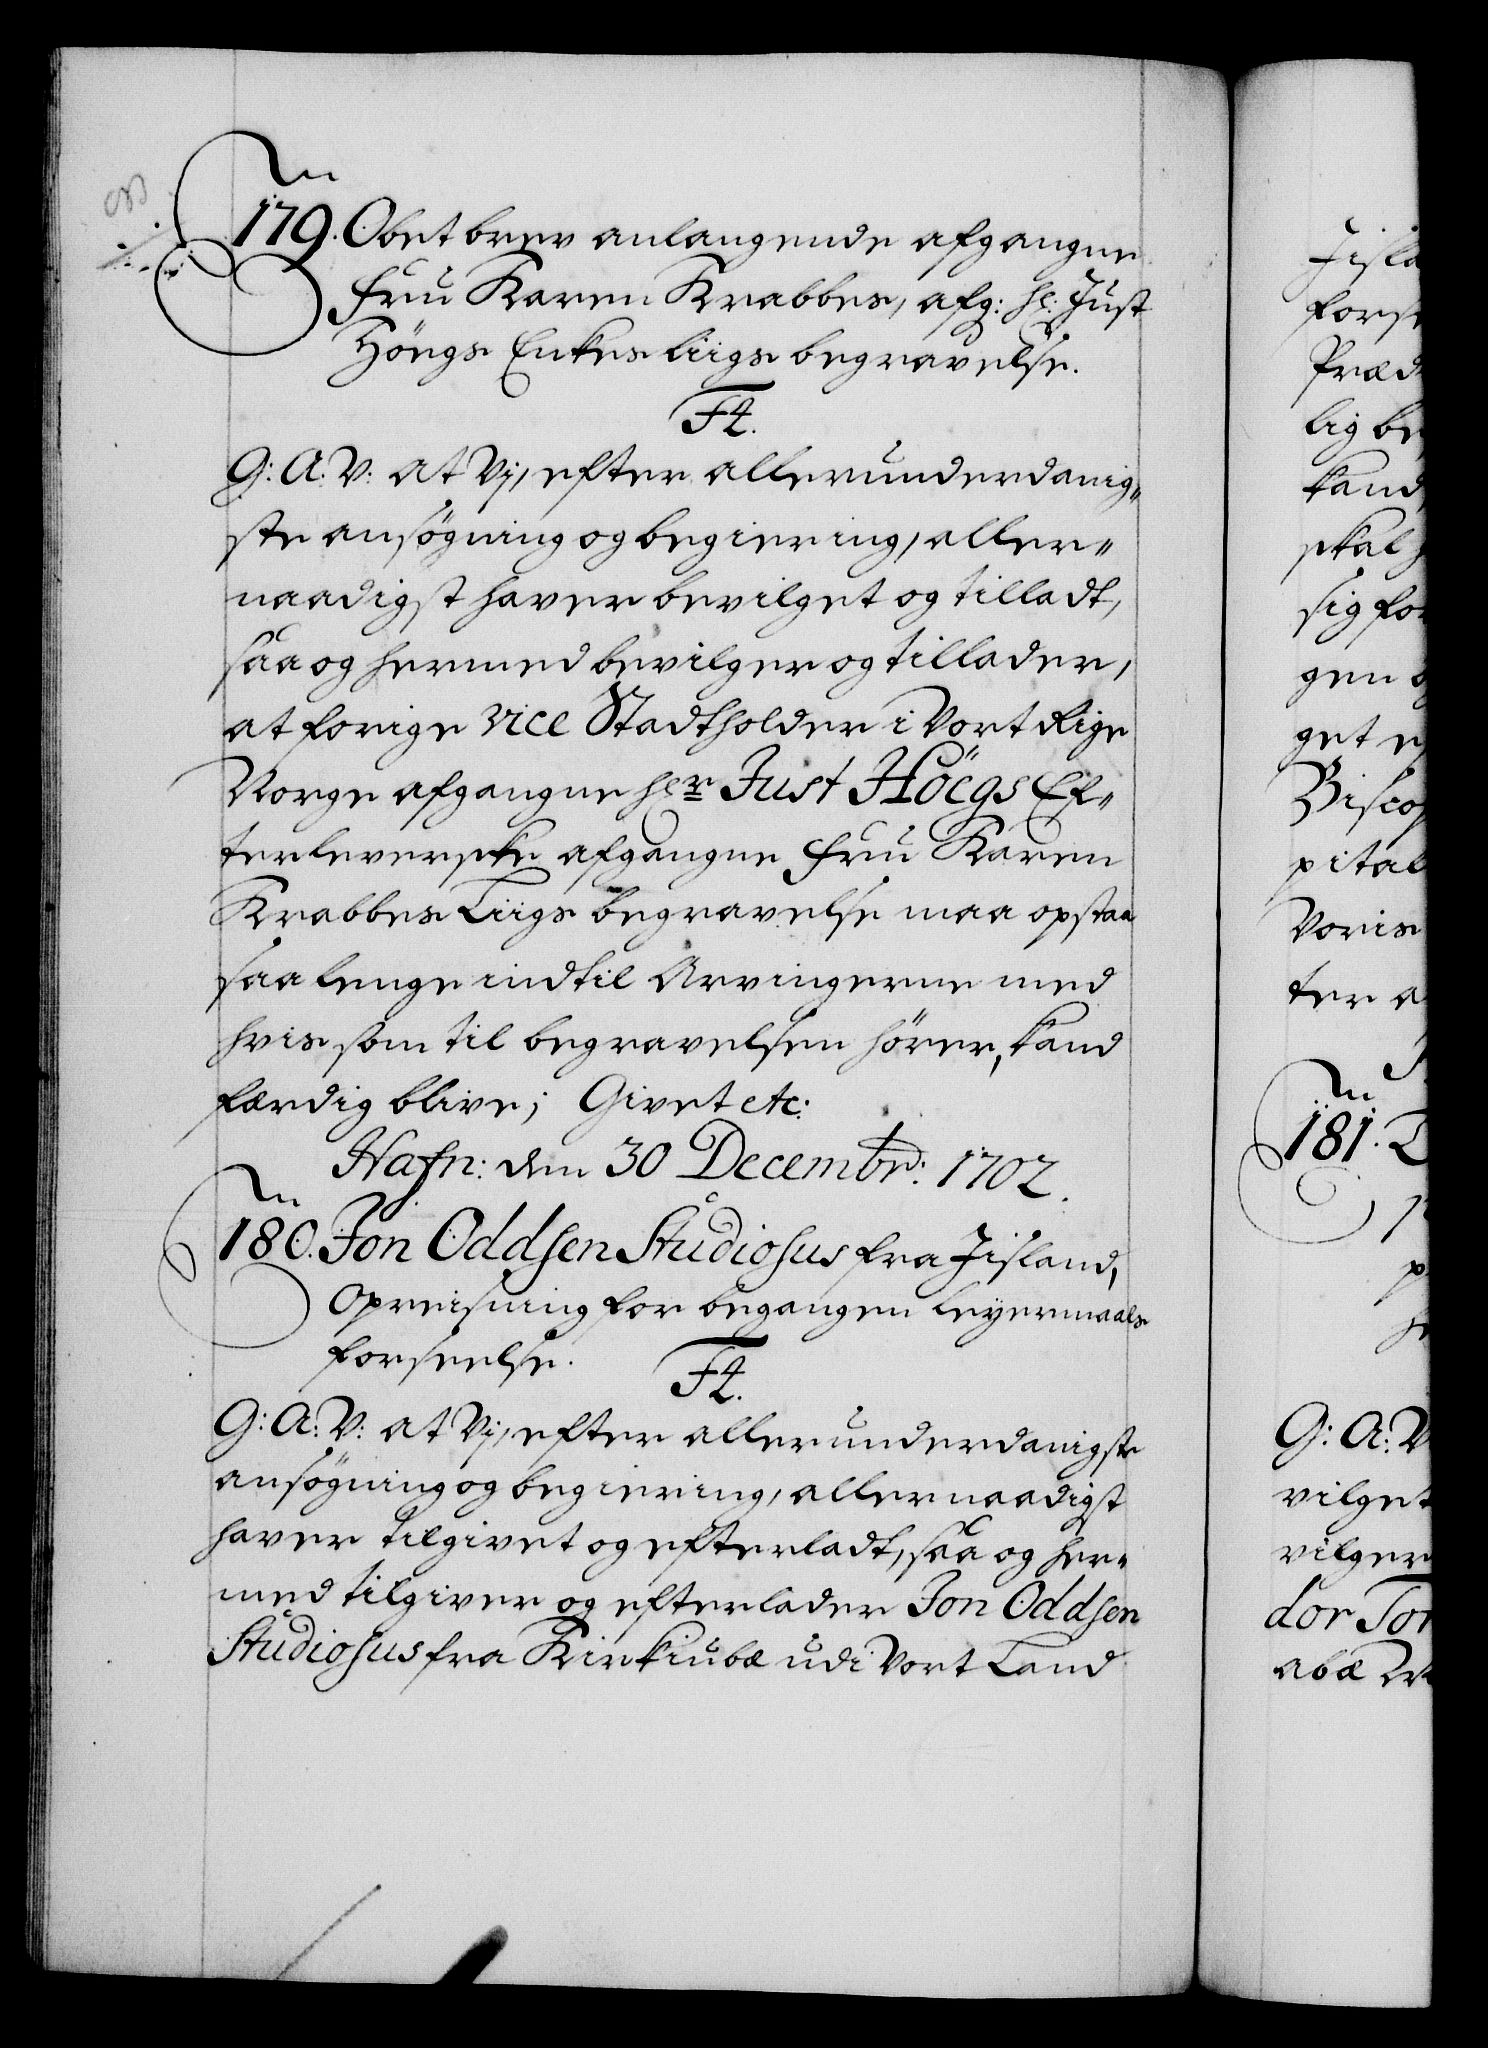 179. Obet brev anlangende afgangne
Fru Karen Krabbes, afg: Hl: Just
Höegs Enkes Liigs begravelse.
Ft.
G: A: V: at Vj, efter allerunderdanig„
ste ansögning og begiering, aller„
naadigst haver bevilget og tilladt,
saa og hermed bevilger og tillader,
at forige Vice Stadtholder i Vort Rige
Norge afgangne Hr Just Höegs Ef„
terleverske afgangne Fru Karen
Krabbes Liigs begravelse maa opstaa
saa lenge indtil Arvingerne med
hvis som til begravelsen hörer, kand
færdig blive; Givet etc:
Hafn: den 30 Decembr: 1702.
180. Jon Oddsen Studiosus fra Jisland,
Opreisning for begangen Leyermaals
forseelse.
Ft.
G: A: V: at Vj, efter allerunderdanigste
ansögning og begiering, allernaadigst
haver tilgivet og efterladt, saa og her„
med tilgiver og efterlader Jon Oddsen
Studiosus fra Kirkiubæ udi Vort Land
Jisla
forse
Præd
lig be
kand
skal
sig for
gen
get
Biscop
pital
Voris
ter
181.
G: A: V
vilget
vilger
dor Tor
abæ